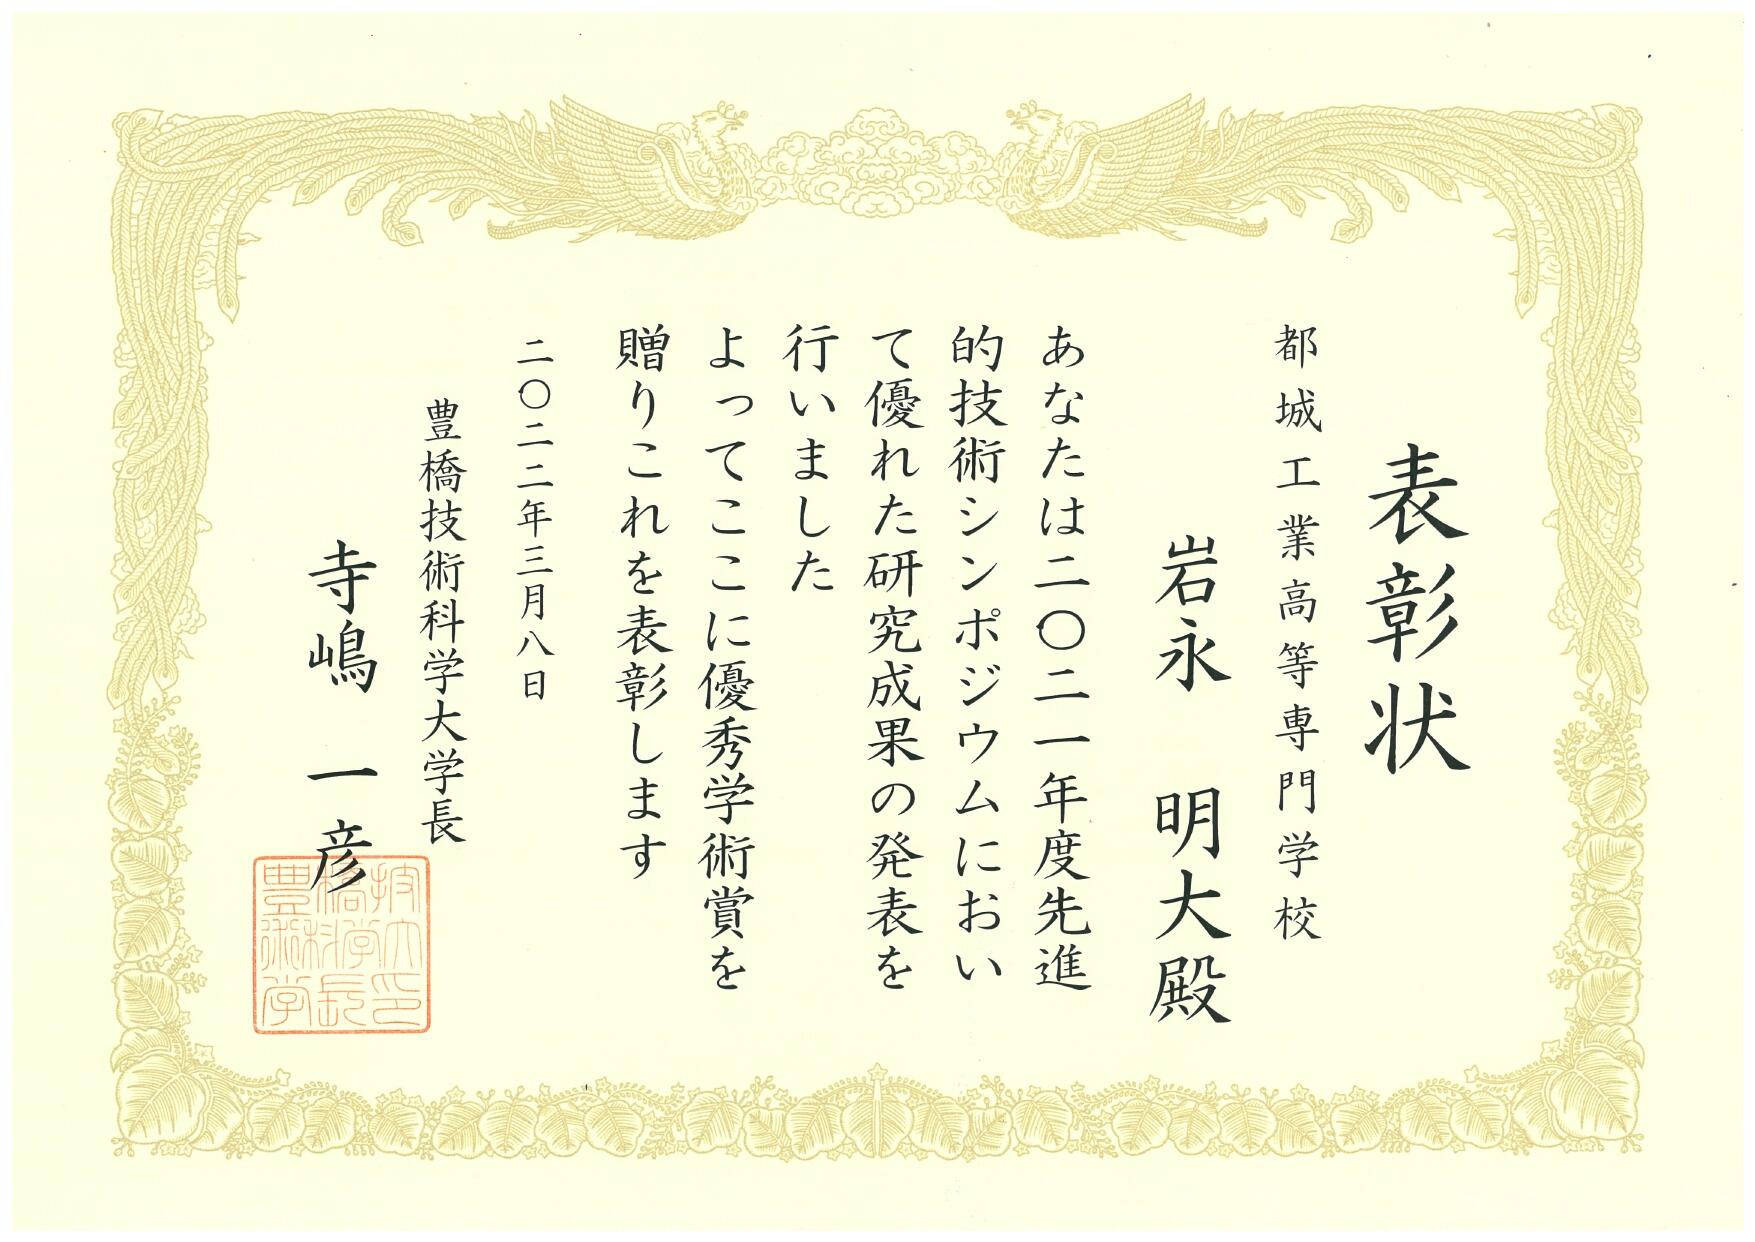 表彰状
都城工業高等専門学校
岩永 明大殿
あなたは二〇二一年度先進
的技術シンポジウムにおい
て優れた研究成果の発表を
行いました
よってここに優秀学術賞を
贈りこれを表彰します
二〇二二年三月八日
豊橋技術科学大学長
寺嶋 一彦
豊橋技
術科学大
学長印